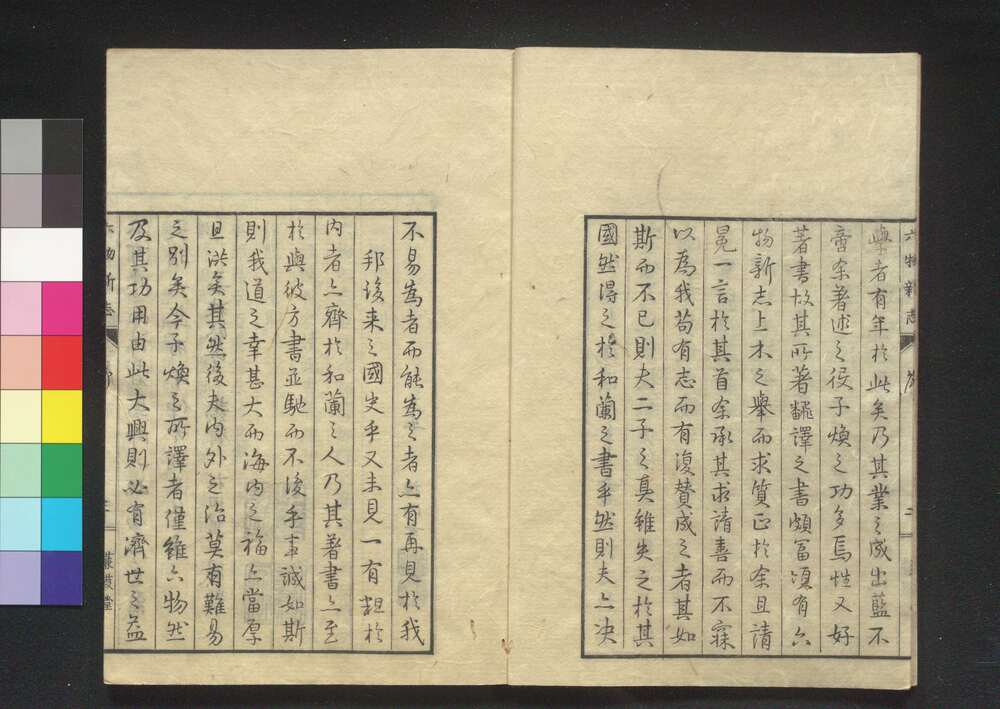 六物新志 序 二
學者有年於此矣乃其業之成出藍不
啻余著述之役子煥之功多焉性又好
著書故其所著飜譯之書頗冨項有六
物新志上木之舉而求質正於余且請
冕一言於其首余承其求請喜而不寐
以為我苟有志而有復賛成之者其如
斯而不已則夫二子之真雖失之於其
國然得之於和蘭之書乎然則夫亦决
不易為者而能為之者亦有再見於我
邦後来之國史乎又未見一有耝於
内者亦齊於和蘭之人乃其著書亦至
於與彼方書並馳而不後乎事誠如斯
則我道之幸甚大而海内之福亦當厚
且洪矣其然後夫内外之治莫有難易
之别矣今子煥之所譯者僅雖六物然
及其功用由此大興則必有濟世之益
六物新志 序 三 蒹葭堂